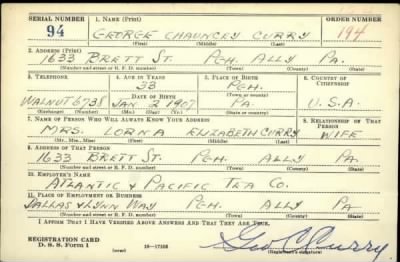 SERIAL NUMBER 1. NAME (Print) ORDER NUMBER
94 GEORGE CHAUNCEY CURRY 194
(First) (Middle) (Last)
2. ADDRESS (Print)
1633 BRETT ST. PGH. ALLY PA.
(Number and street or R. F. D. number) (Town) (County) (State)
3. TELEPHONE 4. AGE IN YEARS 5. PLACE OF BIRTH 6. COUNTRY OF CITIZENSHIP
33 PGH.
DATE OF BIRTH (Town or county)
WALNUT 6738 JAN 2 1907 PA. U.S.A.
(Exchange) (Number) (Mo.) (Day) (Yr.) (State or country)
7. NAME OF PERSON WHO WILL ALWAYS KNOW YOUR ADDRESS 8. RELATIONSHIP OF THAT PERSON
MRS. LORNA ELIZABETH CURRY WIFE
(Mr., Mrs., Miss) (First) (Middle) (Last)
9. ADDRESS OF THAT PERSON
1633 BRETT ST. PGH. ALLY PA
(Number and street or R. F. D. number) (Town) (County) (State)
10. EMPLOYER'S NAME
ATLANTIC & PACIFIC TEA CO.
11. PLACE OF EMPLOYMENT OR BUSINESS
DALLAS & LYNN WAY PGH. ALLY PA.
(Number and street or R. F. D. number) (Town) (County) (State)
I AFFIRM THAT I HAVE VERIFIED ABOVE ANSWERS AND THAT THEY ARE TRUE.
REGISTRATION CARD
D. S. S. Form 1 (over) 16—17105 Geo C Curry
(Registrant's signature)